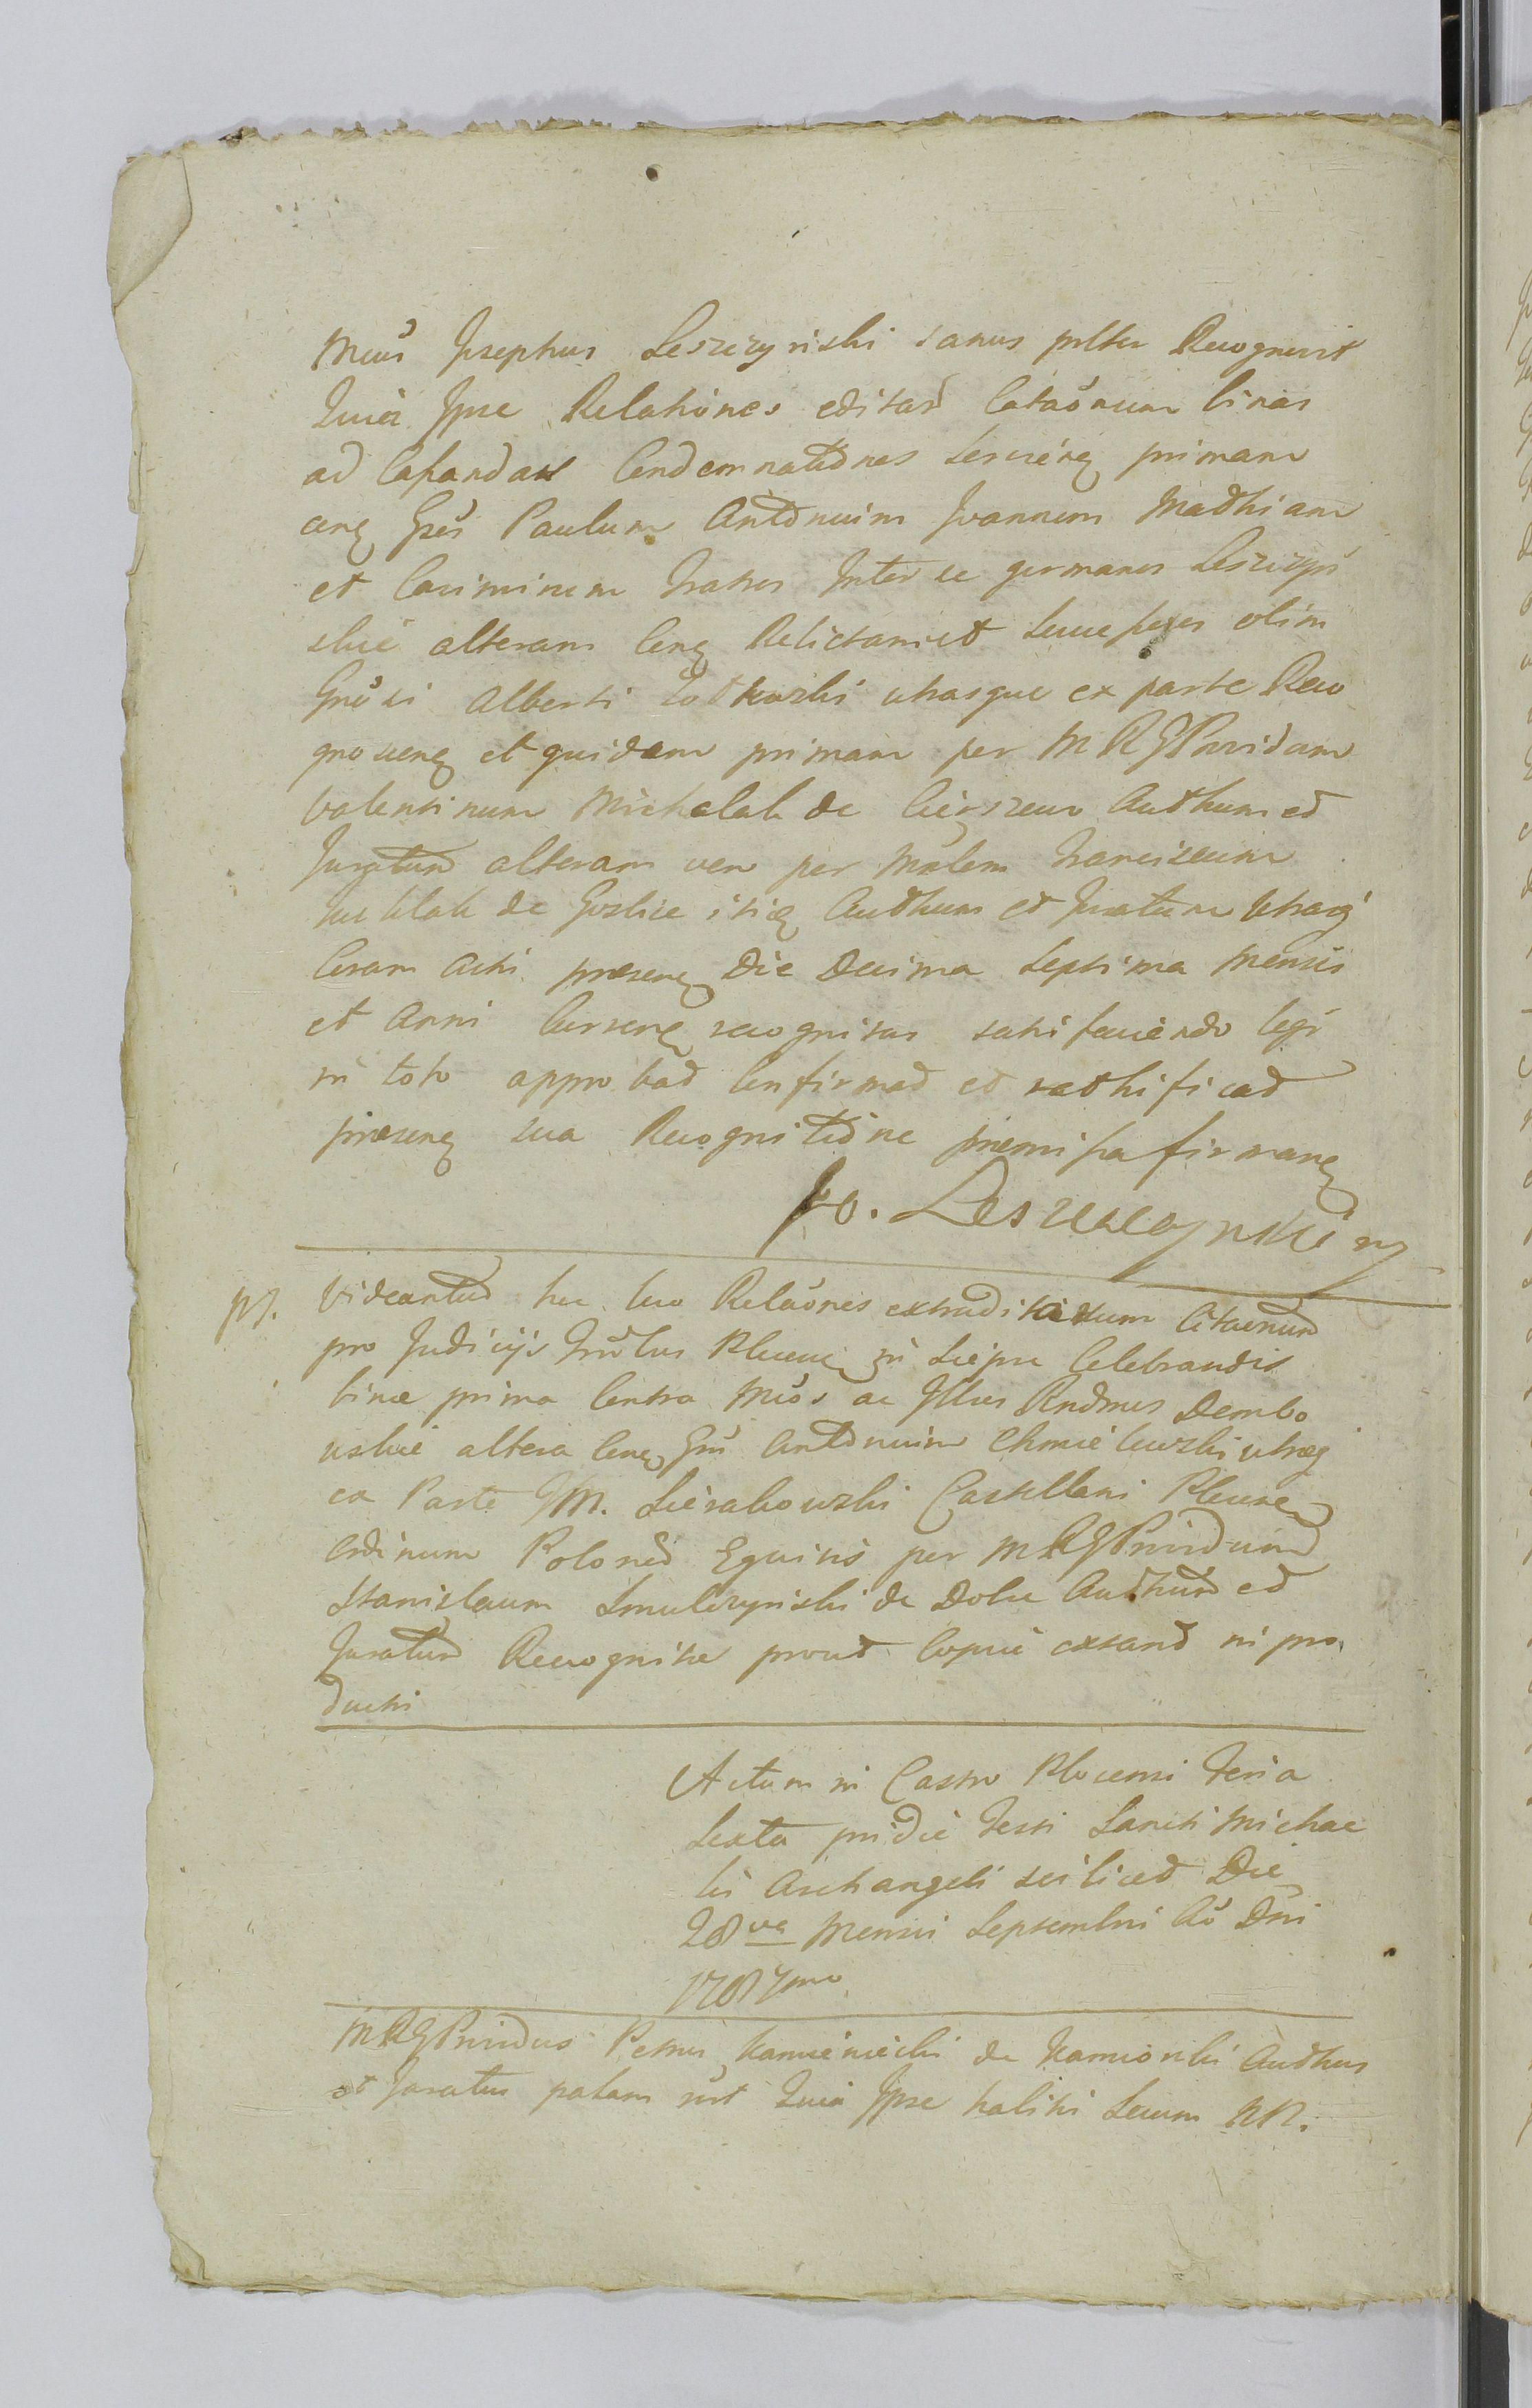 Mcus Josephus Leszczynski sanus pltter Recognovit
Quia Ipse Relationes editar Citaonum binas
ad Captandas Condemnationes Servien primam
con Gsos Paulum Antonium Joannem Mathiam
et Casimirum Fratres Inter se germanos Leszczyn
skie alteram con Relictam et Successores olim
Gnosi Alberti utrasque ex parte Reco
gnoscen et quidem primam per M R G Providum
Valentinum Michalak de Authum et
Juratum alteram vero per Malem Franciscum
de Goslice itid Authum et Juratum utrasq
Coram Actis praesen Die Decima Septima Mensis
et Anni Curren recognitas satisfaciendo legi
in toto approbat Confirmat et rathificat
praesen sua Recognitione praemissa firman
Jo. Leszczynski m
ps. Videantur hic loco Relaones extraditarum Citaonum
pro Judicijs Trbus Plocen in Sierpsc Celebrandis
binae prima Contra Mcos ac Illres Rndmus Dembo
wskie altera con Gsm Antonium Chmielewski utraq
ex Parte I M. Sierakowski Castellani Plocen
Ordinum Polonor Equitis per M R G Providum
Stanislaum Smulczynski de Authum et
Juratum Recognitae prout Copiae extant in pro
ducti
Actum in Castro Plocensi Feria
Sexta pridie Festi Sancti Michae
lis Archangeli scilicet Die
28va Mensis Septembris Ao Dni
178 mo
M R G Providus Petrus Kamieniecki de Kamionki Authus
et Juratus palam rnt Quia Ipse habitis Secum NN.